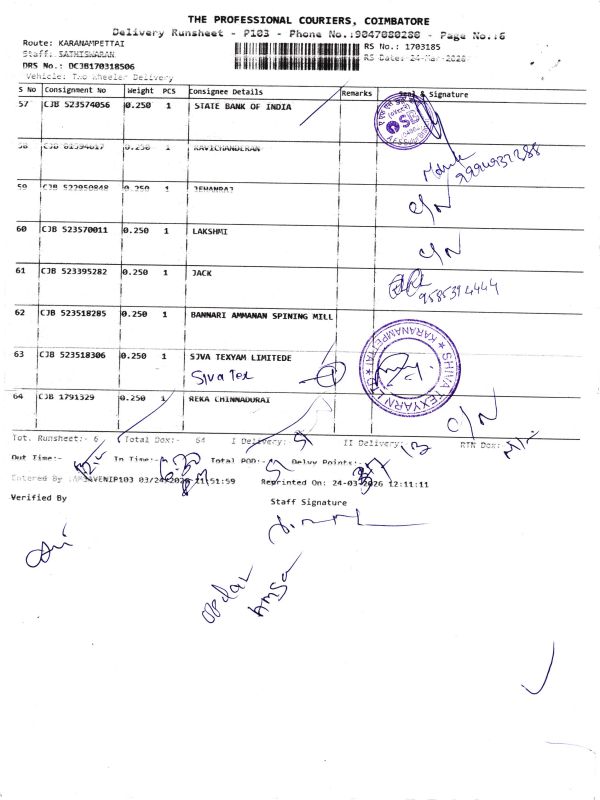 THE PROFESSIONAL COURIERS, COIMBATORE
Delivery Runsheet - P103 - Phone No.:9047080280 - Page No.:6
Route: KARANAMPETTAI
RS No.: 1703185
Staff: SATHISWARAN
RS Date: 24-Mar-2026
DRS No.: DCJB170318506
Vehicle: Two Wheeler Delivery
S No Consignment No Weight PCS Consignee Details Remarks Seal & Signature
57 CJB 523574056 0.250 1 STATE BANK OF INDIA
58 CJB 81594617 0.250 1 RAVICHANDERAN
9994937288
59 CJB 522950848 0.250 1 JEHANRAJ
C/N
60 CJB 523570011 0.250 1 LAKSHMI
C/N
61 CJB 523395282 0.250 1 JACK
9585394444
62 CJB 523518285 0.250 1 BANNARI AMMANAN SPINING MILL
63 CJB 523518306 0.250 1 SJVA TEXYAM LIMITEDE
Siva Tex
SHIVA TEXYARN LTD KARANAMPETTAI
64 CJB 1791329 0.250 1 REKA CHINNADURAI
C/N
Tot. Runsheet:- 6 Total Dox:- 64 I Delivery:- 51 II Delivery:- 13 RTN Dox:-
Out Time:- In Time:- 6:30 PM Total POD:- 51 Delvy Points:- 37
Entered By 03/24/2026 11:51:59 Reprinted On: 24-03-2026 12:11:11
Verified By
Staff Signature